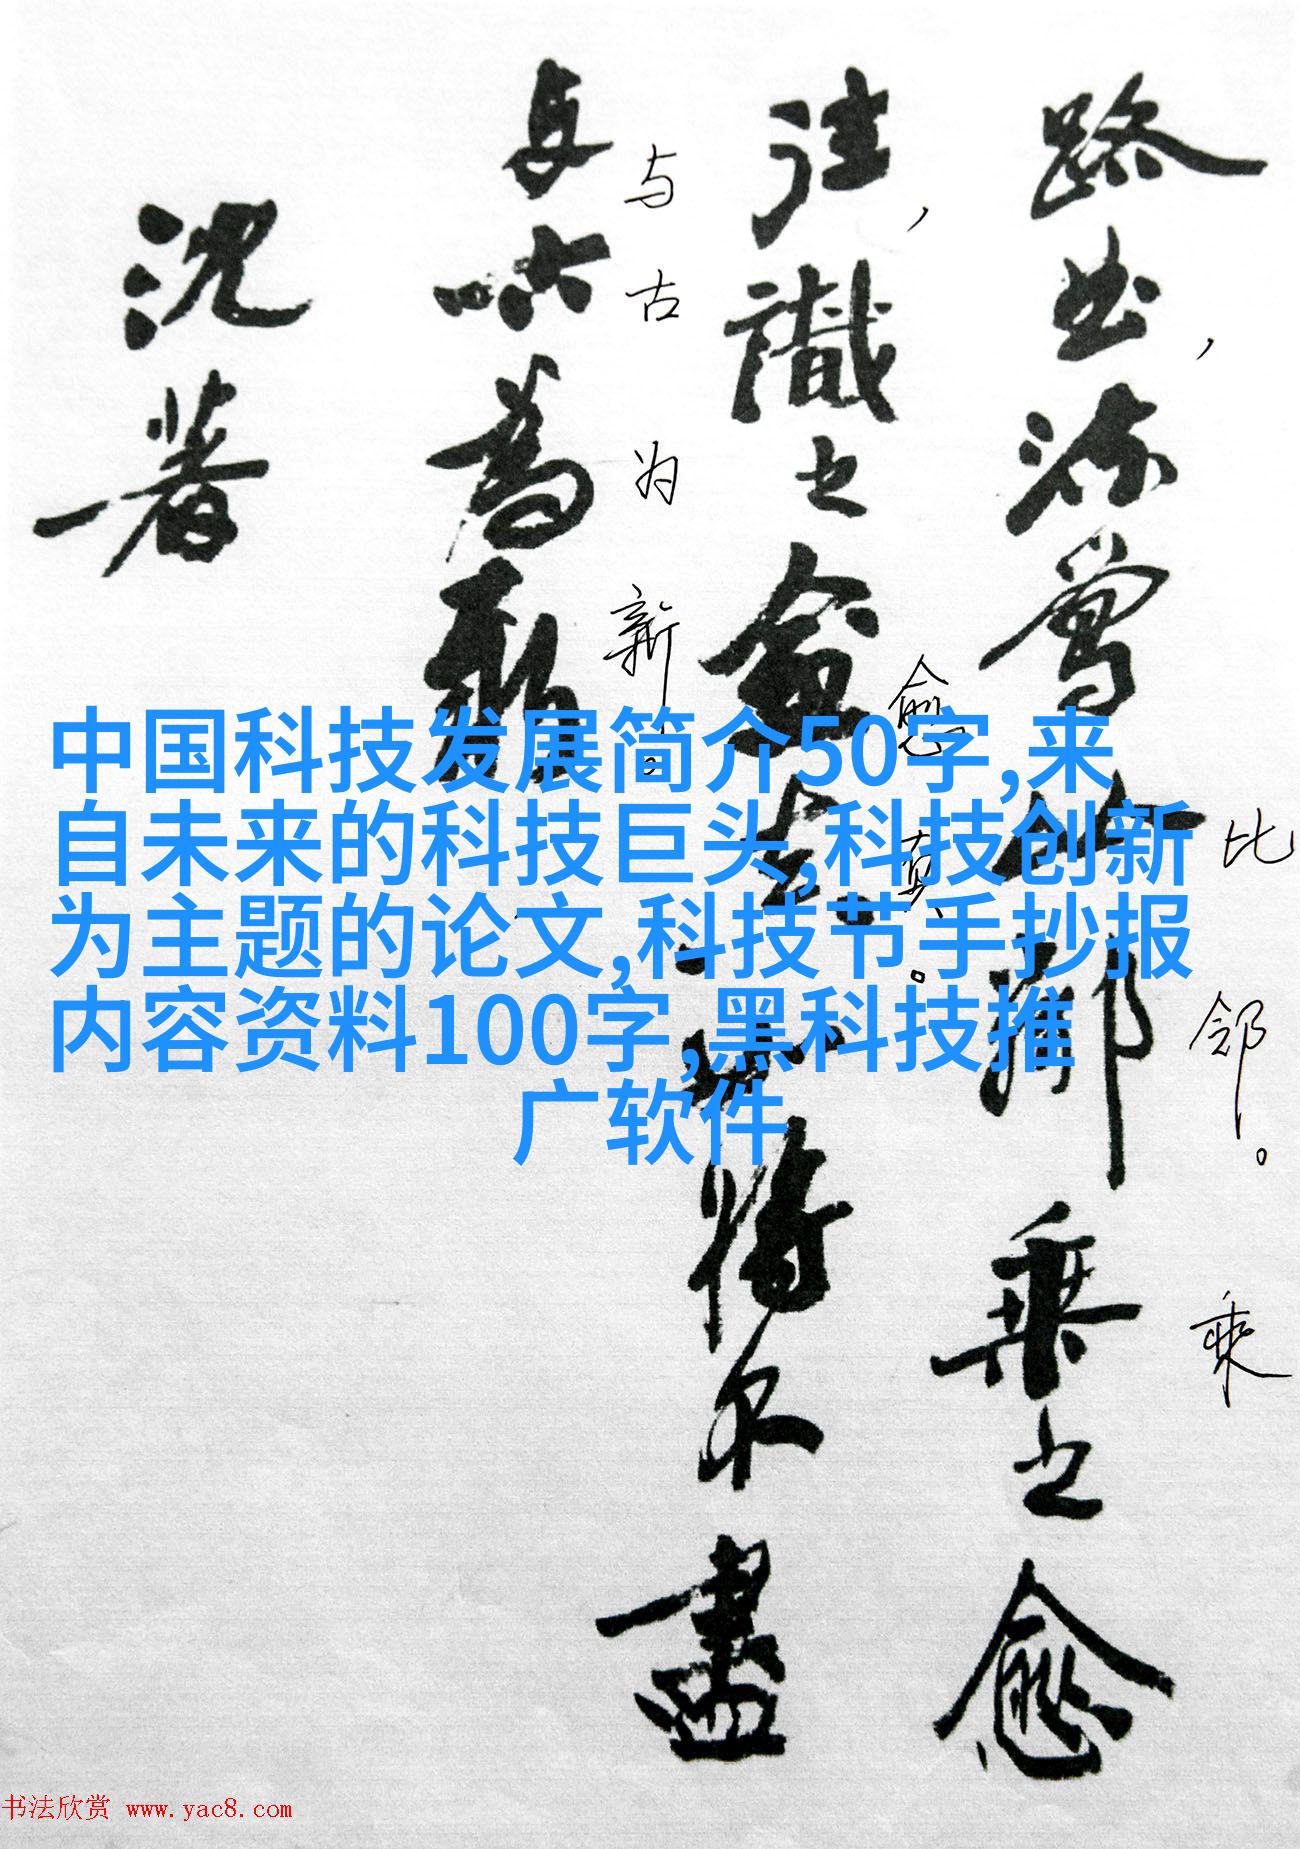 路曲,流鶯比鄰乘之愈
比邻。乘
往,識之愈真如將不盡
愈真。
与古為新
与古为新。
沈著
中国科技发展简介50字,来
自未来的科技巨头,科技创新
为主题的论文,科技节手抄报
内容资料100字,黑科技推
广软件
书法欣赏 www.yac8.com